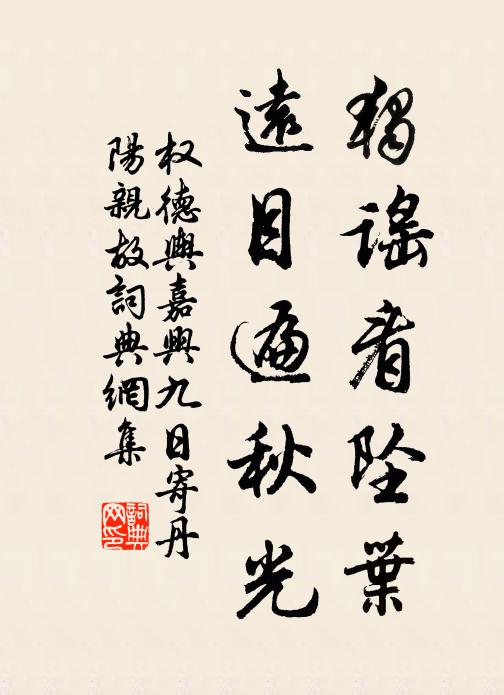 獨謡看墜葉
遠目遍秋光
权德輿嘉興九日寄丹
陽親故詞典網集
詞典
网印